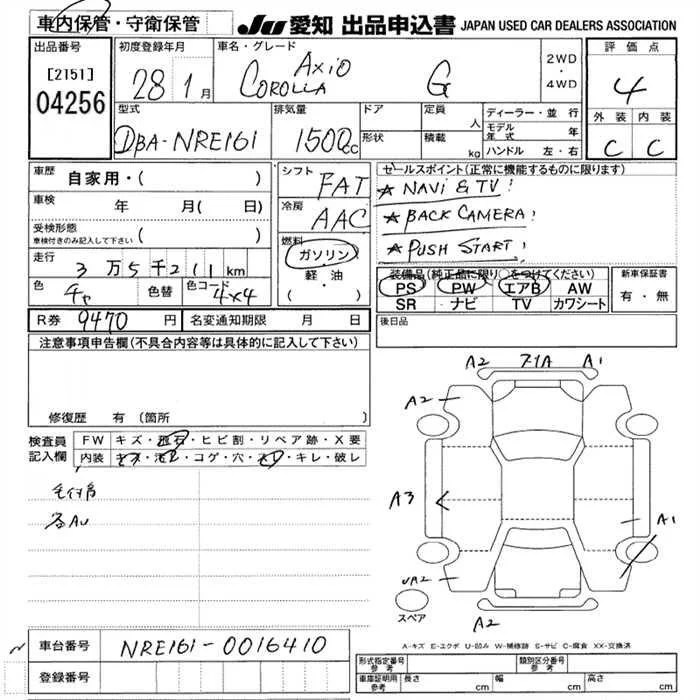 車内保管・守衛保管 JU 愛知 出品申込書 JAPAN USED CAR DEALERS ASSOCIATION
出品番号 初度登録年月 車名・グレード 評価点
[2151] 04256 28 1月 COROLLA AXiO G 2WD・4WD 4
型式 排気量 ドア 定員 ディーラー・並行 外装 内装
DBA-NRE161 1500cc 形状 人 積載 kg モデル年式 年 ハンドル 左・右 C C
車歴 自家用・( ) シフト FAT セールスポイント(正常に機能するものに限ります)
車検 年 月( 日) 冷房 AAC ★ NAVi & TV!
受検形態 車検付きのみ記入して下さい ( ) ★ BACK CAMERA!
燃料 ガソリン 軽油 (・ ) ★ PUSH START!
走行 3万5千211km 装備品(純正品に限り○をつけてください) 新車保証書
色 チャ 色替 色コード 4x4 PS PW エアB AW 有・無
SR ナビ TV カワシート
R券 9470 円 名変通知期限 月 日 後日品
注意事項申告欄(不具合内容等は具体的に記入して下さい)
修復歴 有(箇所
検査員記入欄 FW キズ・飛石・ヒビ割・リペア跡・X要
内装 キズ・汚レ・コゲ・穴・スレ・キレ・破レ
各AU
A2 アイA A1
A2
A3
A1
UA2
スペア
A2
A-キズ E-エクボ U-凹み W-補修跡 S-サビ C-腐食 XX-交換済
車台番号 NRE161-0016410
登録番号
形式指定番号 参考 類別区分番号 参考
車庫証明用 参考 長さ cm 幅 cm 高さ cm